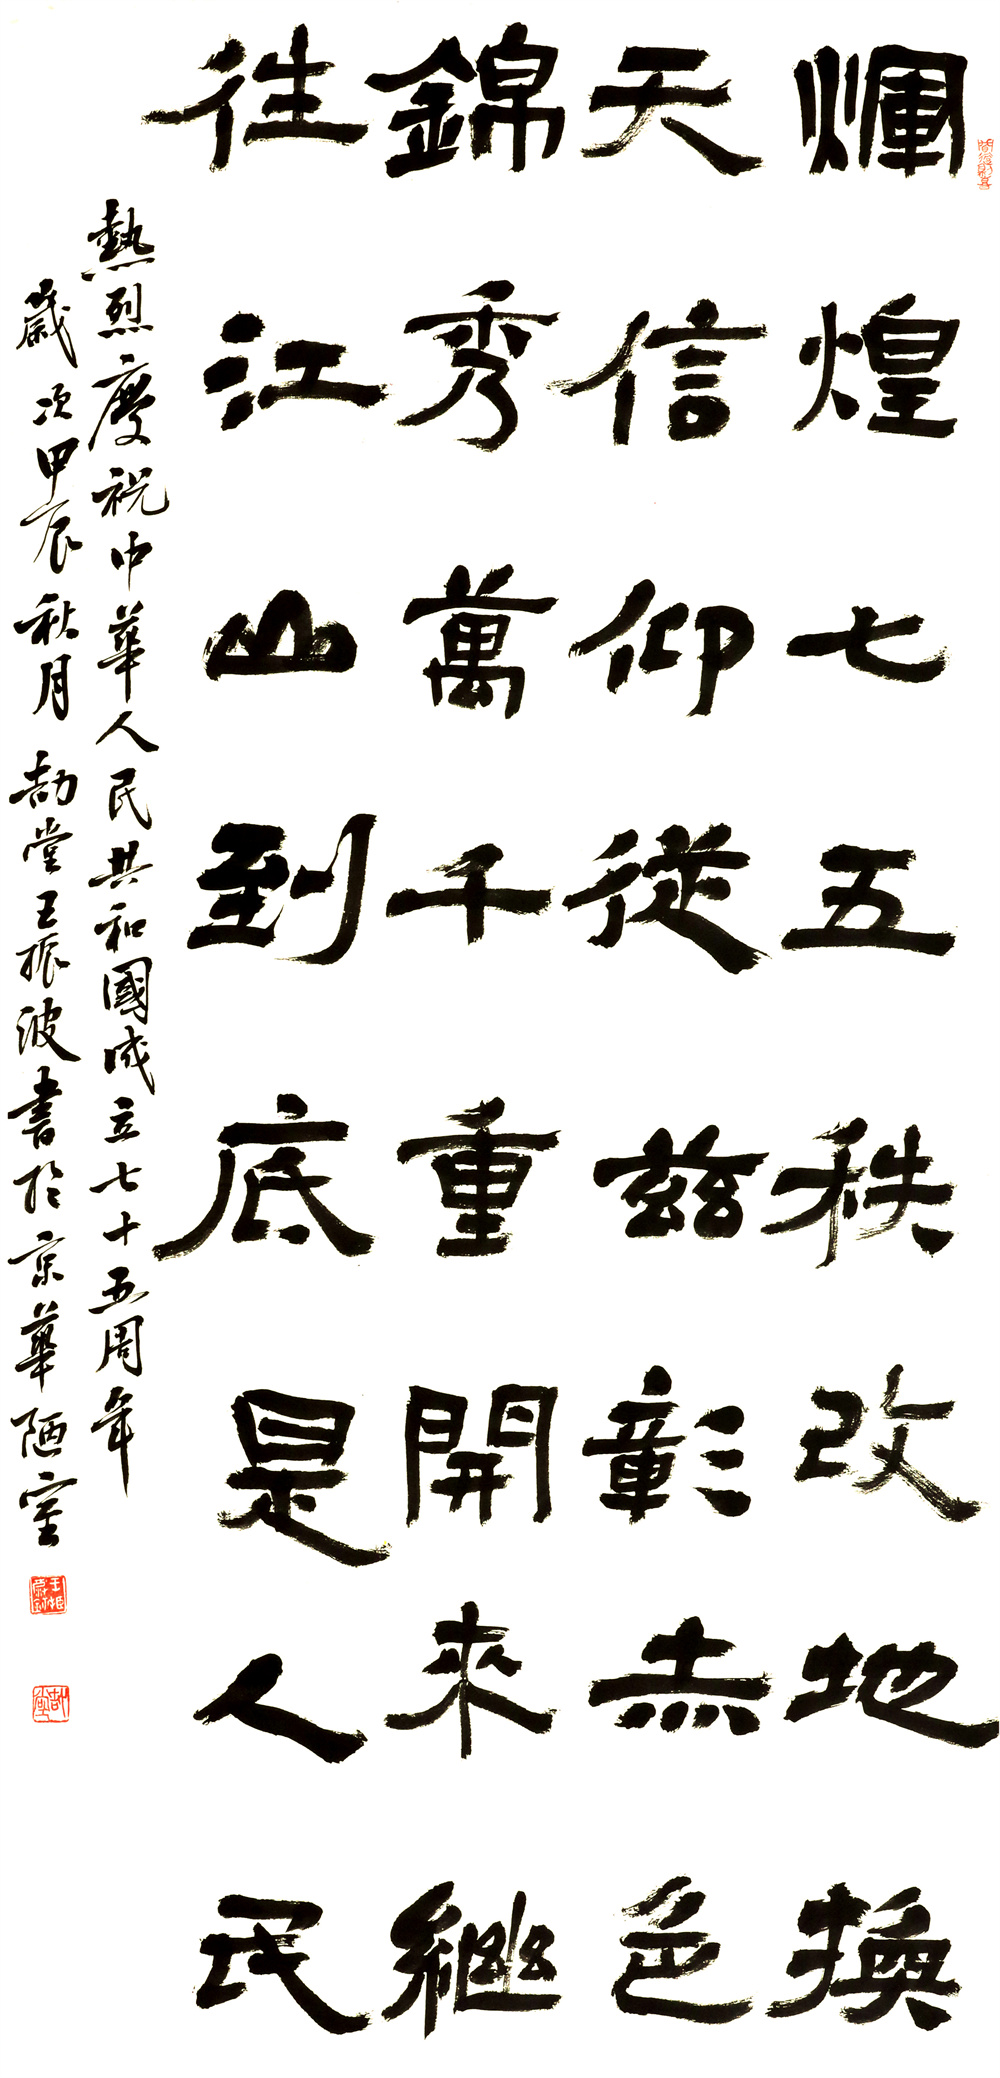 煇煌七五秩改地換
天信仰從茲彰赤色
錦秀萬千重開來繼
往江山到底是人民
熱烈慶祝中華人民共和國成立七十五周年
歲次甲辰秋月劼堂王振波書於京華陋室